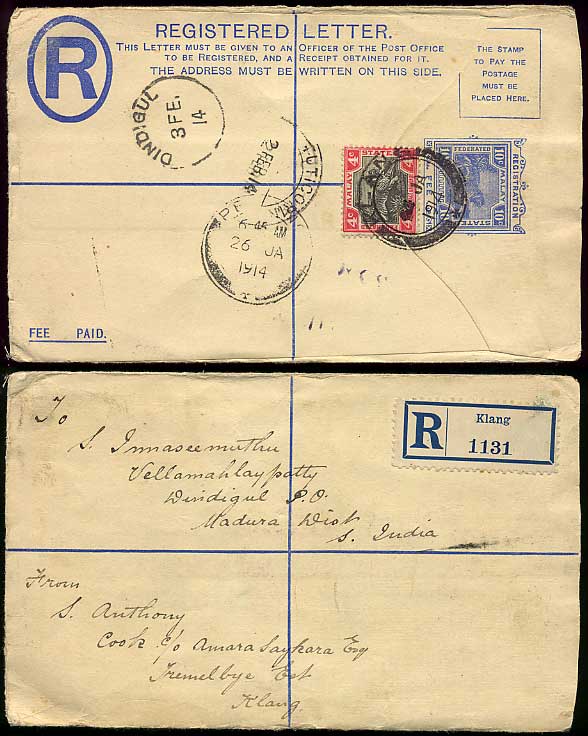 R
REGISTERED LETTER.
THIS LETTER MUST BE GIVEN TO AN OFFICER OF THE POST OFFICE
TO BE REGISTERED, AND A RECEIPT OBTAINED FOR IT.
THE ADDRESS MUST BE WRITTEN ON THIS SIDE.
THE STAMP
TO PAY THE
POSTAGE
MUST BE
PLACED HERE.
DINDIGUL
3 FE.
14
TUTICORIN
2 FEB 14
AM
26 JA
1914
4c 4c
MALAY STATES
JA
1914
10c 10c
FEDERATED
MALAY
STATES
FEE
REGISTRATION
FEE PAID.
To
S. Innaseemuthu
Vellamahlaypatty
Dindigul P.O.
Madura Dist
S. India
R
Klang
1131
From
S. Anthony
Cook c/o Amara Saykara Esq
Tremelbye Est
Klang.